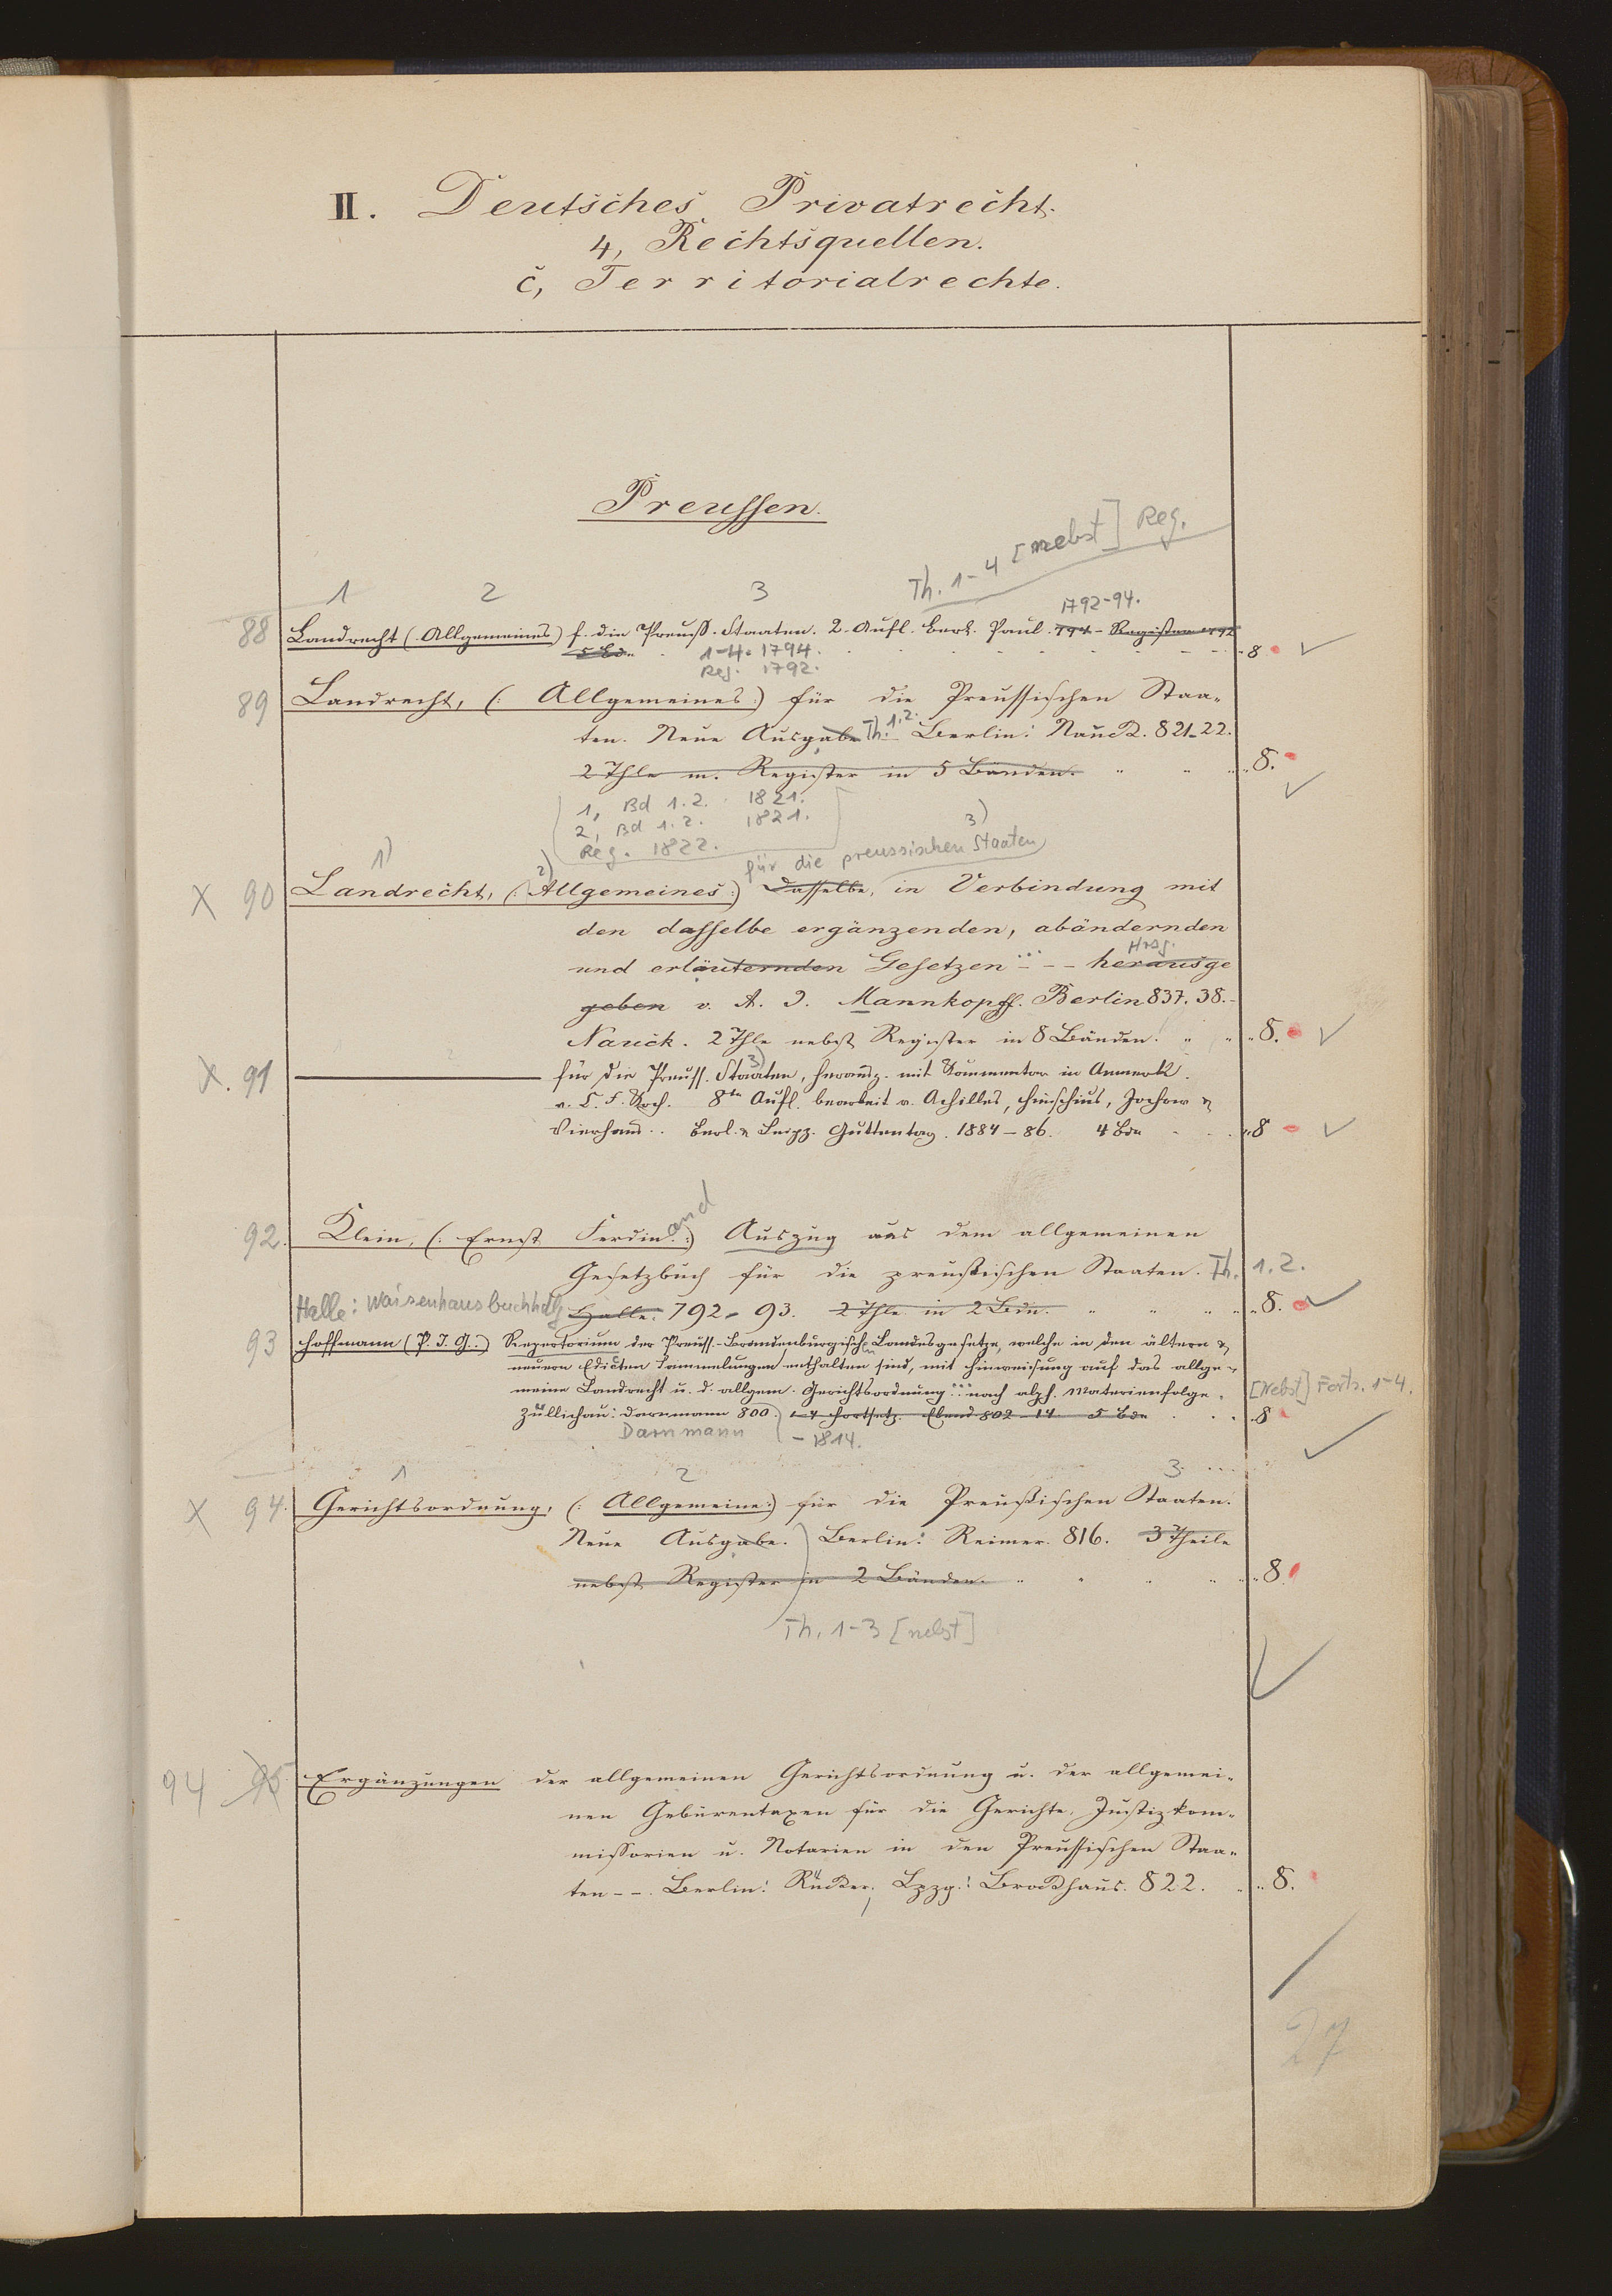 II. Deutsches Privatrecht.
4, Rechtsquellen.
c, Territorialrechte.
Preussen.
Th. 1-4 [nebst] Reg.
1 2 3
1792-94.
88 Landrecht (Allgemeines) f. die Preuss. Staaten. 2. Aufl. Berl. Paul. 794 - Register 1792
5 Bde. 1-4. 1794. 8
Reg. 1792.
89 Landrecht, (: Allgemeines :) für die Preussischen Staa-
ten. Neue Ausgabe Th. 1.2. Berlin: Nauck. 821-22.
2 Thle m. Register in 5 Bänden. 8.
1, Bd 1.2. 1821.
2, Bd 1.2. 1821.
Reg. 1822.
1) 2) für die preussischen Staaten 3)
X 90 Landrecht, (: Allgemeines :) dasselbe, in Verbindung mit
den dasselbe ergänzenden, abändernden
Hrsg.
und erläuternden Gesetzen - - - herausge
geben v. A. J. Mannkopff. Berlin 837. 38.
Nauck. 2 Thle nebst Register in 8 Bänden. 8.
X. 91 für die Preuss. Staaten, herausg. mit Kommentar in Anmerk.
v. C. F. Koch. 8te Aufl. bearbeit v. Achilles, Hinschius, Johow &
Vierhaus. Berl. & Leipz. Guttentag. 1884-86. 4 Bde 8
92. Klein, (: Ernst Ferdinand :) Auszug aus dem allgemeinen
Gesetzbuch für die preussischen Staaten. Th. 1.2.
Halle: Waisenhausbuchhdlg Halle. 792-93. 2 Thle in 2 Bdn. 8.
93 Hoffmann (P. J. G.:) Repertorium der Preuss.-Brandenburgischen Landesgesetze, welche in den ältern &
neuern Edicten Sammlungen enthalten sind, mit Hinweisung auf das allge-
meine Landrecht u. d. allgem. Gerichtsordnung ... nach alph. Materienfolge. [Nebst] Forts. 1-4.
Züllichau: Darnmann 800. 1-4 Fortsetz. Ebend 802-14 5 Bde 8
Darnmann - 1814.
1 2 3. ...
X 94. Gerichtsordnung, (: Allgemeine :) für die Preußischen Staaten.
Neue Ausgabe. Berlin: Reimer. 816. 3 Theile
nebst Register in 2 Bänden. 8.
Th. 1-3 [nebst]
94 95 Ergänzungen der allgemeinen Gerichtsordnung u. der allgemei-
nen Gebürentaxen für die Gerichte, Justizkom-
missorien u. Notarien in den Preussischen Staa-
ten - - . Berlin: Rücker, Lpzg.: Brockhaus. 822. 8.
27